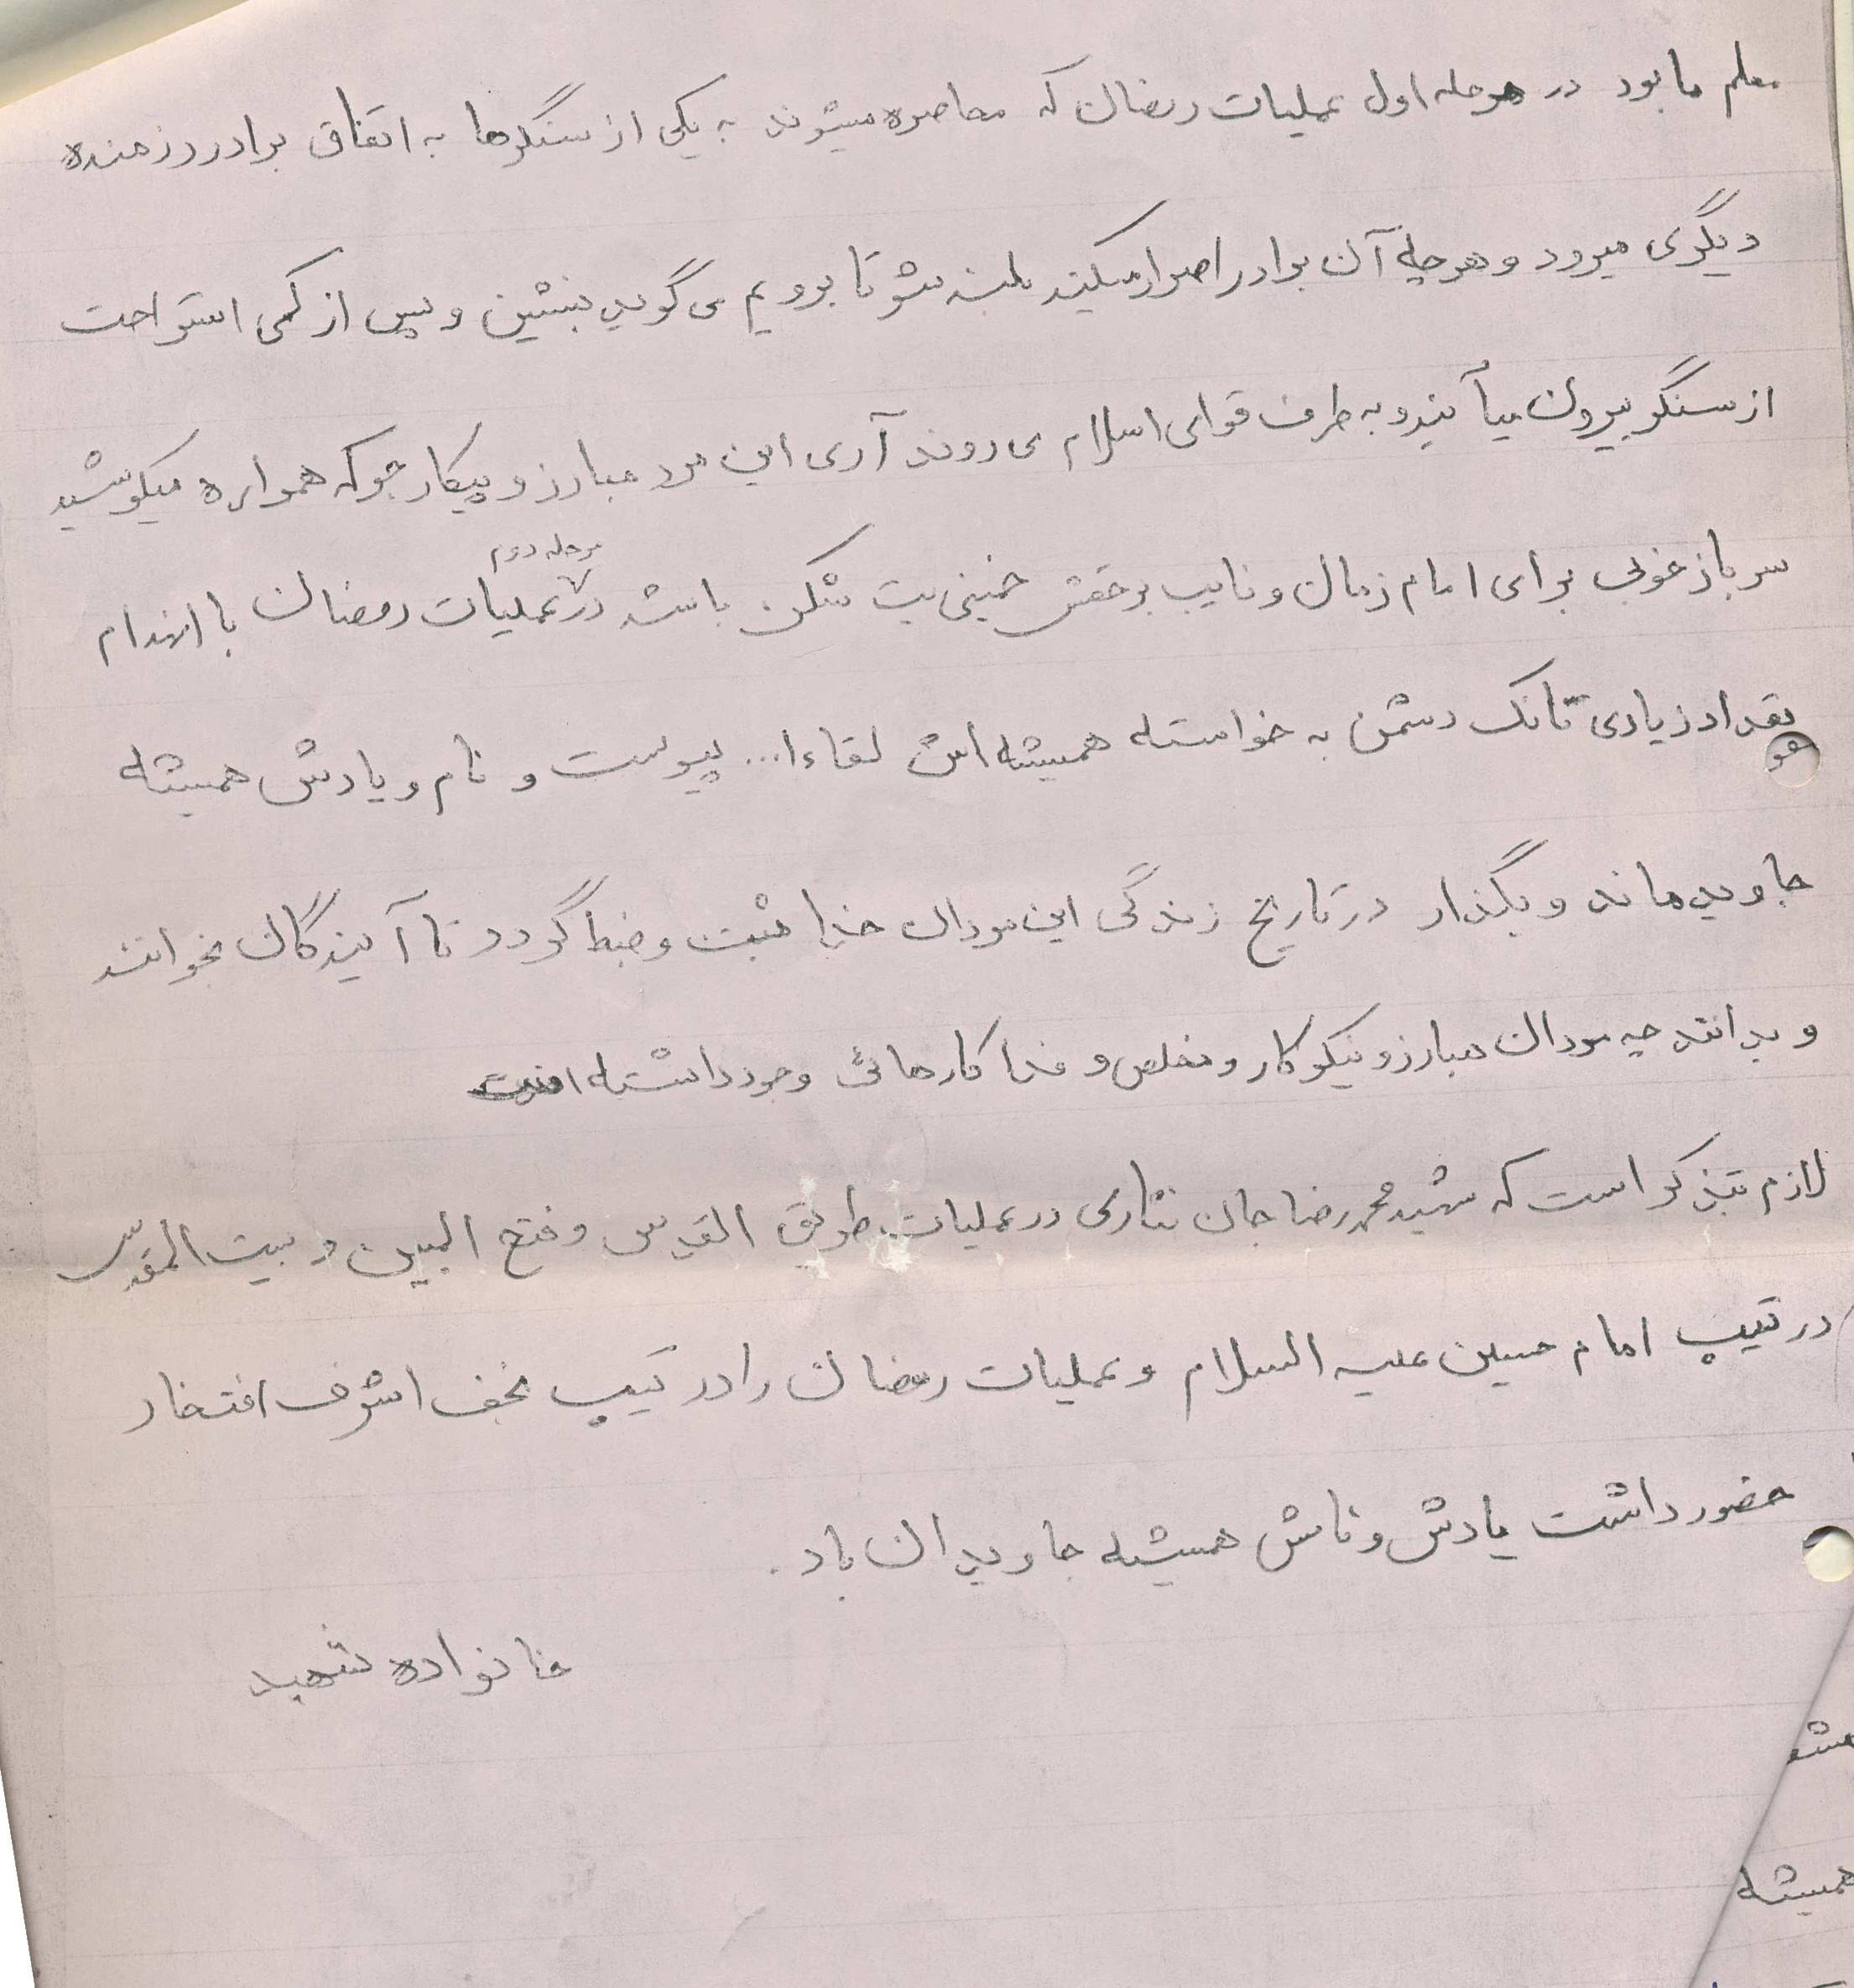 معلم ما بود در مرحله اول عملیات رمضان که محاصره میشوند به یکی از سنگرها به اتفاق برادر رزمنده
دیگری میرود و هرچه آن برادر اصرار میکند بلند شو تا برویم می گوید بنشین و پس از کمی استراحت
از سنگر بیرون میآیند و به طرف قوای اسلام می روند آری این مرد مبارز و پیکار جو که همواره میکوشید
سرباز خوبی برای امام زمان و نایب برحقش خمینی بت شکن باشد در مرحله دوم عملیات رمضان با انهدام
تعداد زیادی تانک دشمن به خواسته همیشه اش لقاء ا... پیوست و نام و یادش همیشه
جاوید ماند و بگذار در تاریخ زندگی این مردان خدا ثبت و ضبط گردد تا آیندگان بخوانند
و بدانند چه مردان مبارز و نیکو کار و مخلص و فدا کارهائی وجود داشته
لازم بتذکر است که شهید محمدرضا جان نثاری در عملیات طریق القدس و فتح المبین و بیت المقدس
در تیپ امام حسین علیه السلام و عملیات رمضان را در تیپ نجف اشرف افتخار
حضور داشت یادش و نامش همیشه جاویدان باد.
خانواده شهید
همیشه